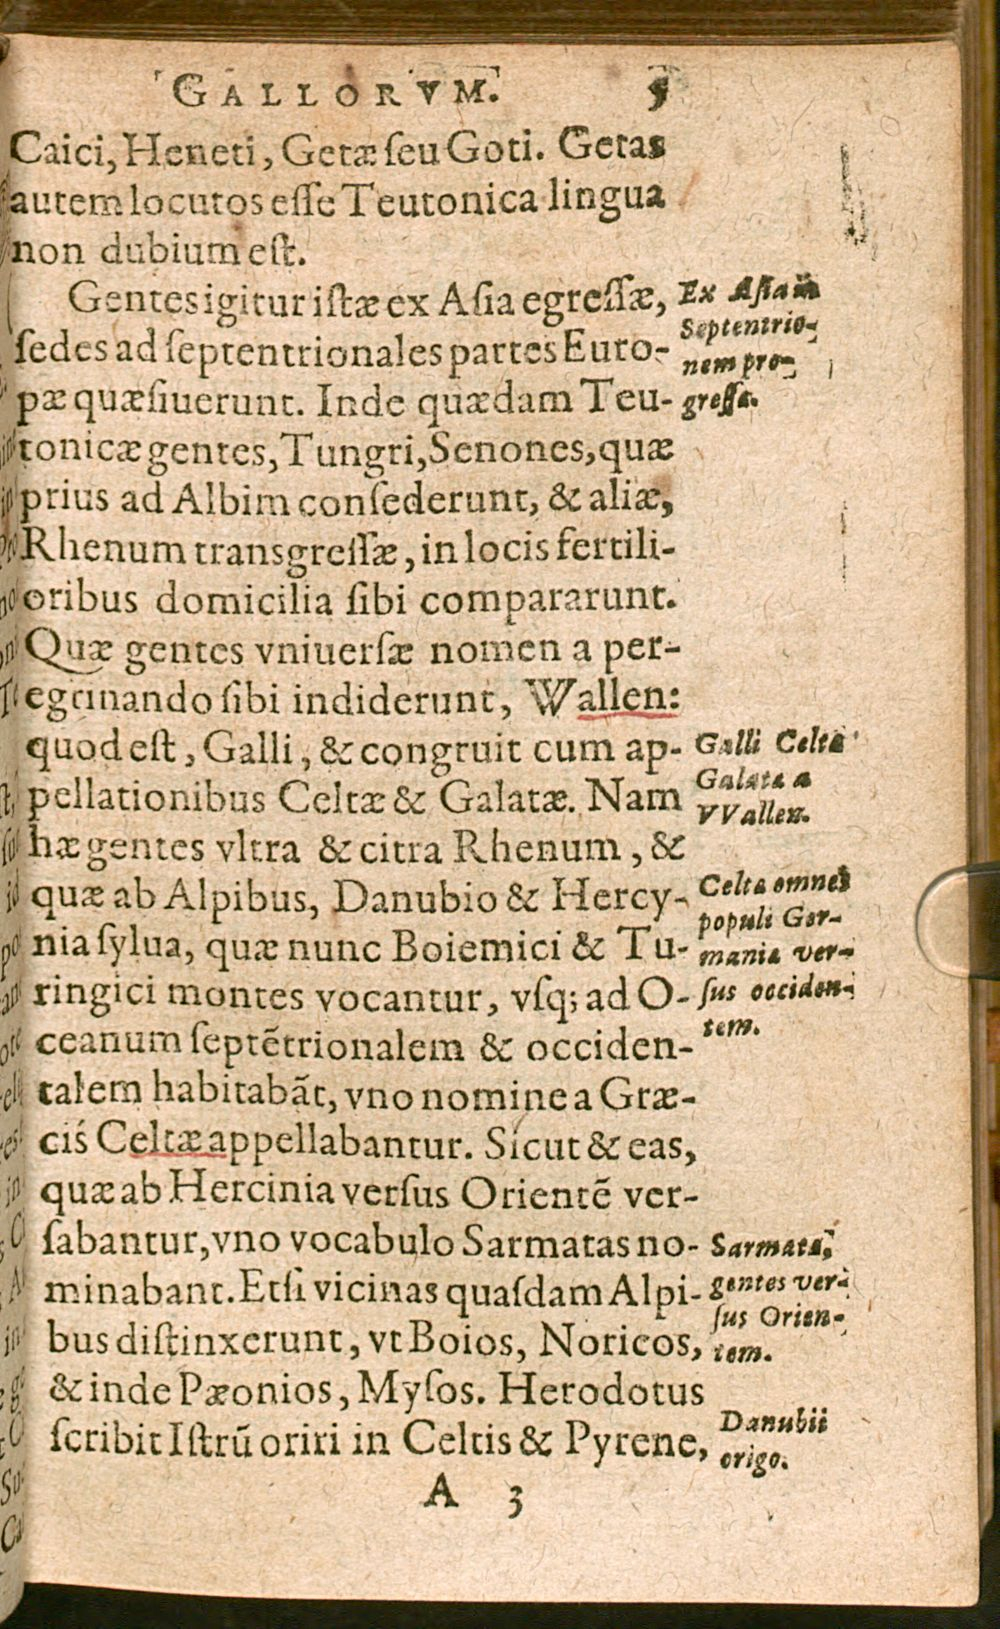 GALLORVM. 5
Caici, Heneti, Getæ ſeu Goti. Getas
autem locutos eſſe Teutonica lingua
non dubium eſt.
Gentes igitur iſtæ ex Aſia egreſſæ,
ſedes ad ſeptentrionales partes Euro-
pæ quæſiuerunt. Inde quædam Teu-
tonicæ gentes, Tungri, Senones, quæ
prius ad Albim conſederunt, & aliæ,
Rhenum transgreſſæ, in locis fertili-
oribus domicilia ſibi compararunt.
Quæ gentes vniuerſæ nomen a per-
egrinando ſibi indiderunt, Wallen:
quod eſt, Galli, & congruit cum ap-
pellationibus Celtæ & Galatæ. Nam
hæ gentes vltra & citra Rhenum, &
quæ ab Alpibus, Danubio & Hercy-
nia ſylua, quæ nunc Boiemici & Tu-
ringici montes vocantur, vſq; ad O-
ceanum ſeptẽtrionalem & occiden-
talem habitabãt, vno nomine a Græ-
cis Celtæ appellabantur. Sicut & eas,
quæ ab Hercinia verſus Orientẽ ver-
ſabantur, vno vocabulo Sarmatas no-
minabant. Etſi vicinas quaſdam Alpi-
bus diſtinxerunt, vt Boios, Noricos,
& inde Pæonios, Myſos. Herodotus
ſcribit Iſtrũ oriri in Celtis & Pyrene,
A 3
Ex Aſia in
Septentrio-
nem pro-
greſſæ.
Galli Celtæ
Galatæ a
VVallen.
Celtæ omnes
populi Ger-
maniæ ver-
ſus occiden-
tem.
Sarmatæ,
gentes ver-
ſus Orien-
tem.
Danubii
origo.